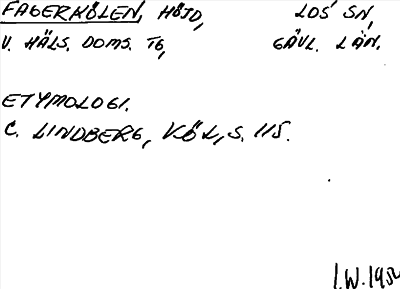 FAGERKÖLEN, HÖJD, LOS SN,
V. HÄLS. DOMS. TG, GÄVL. LÄN.
ETYMOLOGI.
C. LINDBERG, KÖL, S. 115.
I.W. 195